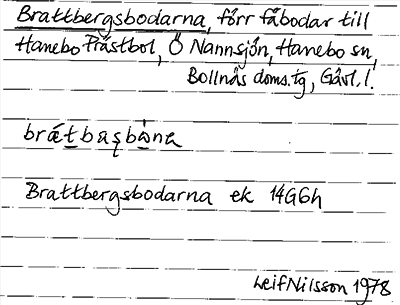 Brattbergsbodarna, förr fäbodar till
Hanebo Prästbol, Ö Nannsjön, Hanebo sn,
Bollnäs doms.tg, Gävl.l.
Brattbergsbodarna ek 14G6h
Leif Nilsson 1978